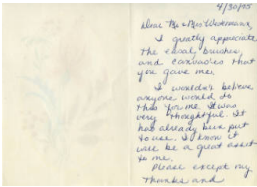 4/30/05
Dear Mr & Mrs
I greatly appreciate
the easel, brushes,
and canvases that
you gave me.
I wouldn't believe
anyone would do
this for me. It was
very thoughtful. It
has already been put
to use. I know it
will be a great asset
to me.
Please accept my
thanks and